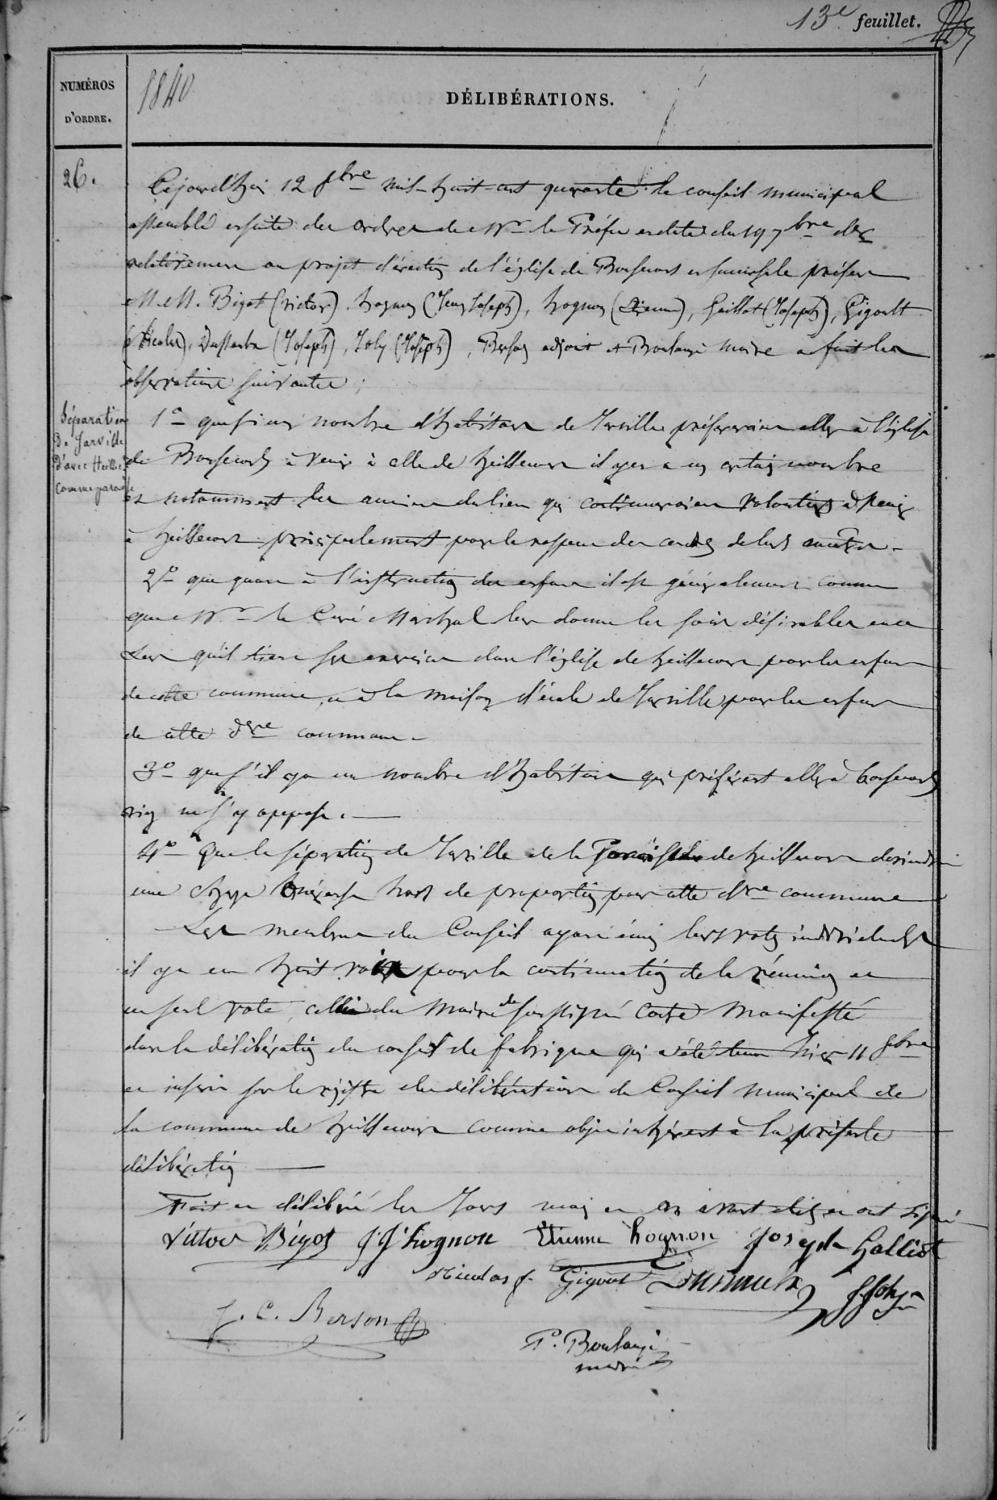 13e feuillet.
NUMÉROS
D'ORDRE.
1840
DÉLIBÉRATIONS.
26.
Cejourd'hui 12 8bre mil-huit cent quarante le conseil municipal
assemblé ensuite des ordres de Mr le Préfet en date du 19 7bre der
relativement au projet d'érection de l'église de Bonsecours en succursale présens
M.M. Bigot (Victor), hognon (Jean Joseph), hognon (Etienne), Galliot (Joseph), Gigoult
(Nicolas), (Joseph), Joly (Joseph), Berson adjoint et Boulangé maire a fait les
observations suivantes;
Séparation
De Jarville
D'avec Heille
comme paroisse
1o que si un nombre d'habitans de Jarville préféraient aller à l'église
de Bonsecours à venir à celle de heillecourt il y en a un certain nombre
et notamment les anciens du lieu qui continueraient volontiers à venir
à heillecourt principalement pour le respect des cendres de leurs ancêtres.
2o que quant à l'instruction des enfans il est généralement connu
que Mr le Curé Marchal leur donne les soins désirables
qu'il tient ses exercices dans l'église de heillecourt pour les enfans
de cette commune, et à la maison d'école de Jarville pour les enfans
de cette dre commune.
3o que s'il y a un nombre d'habitans qui préfèrent aller à bonsecours
rien ne s'y oppose.
4o Que la séparation de Jarville de la Paroisse de heillecourt deviendrait
une charge onéreuse hors de proportion pour cette dre commune
Les membres du Conseil ayant émis leurs votes individuels
il y a eu huit voix pour la continuation de la réunion et
un seul vote, celui du Maire soussigné contre manifesté
dans la délibération du conseil de fabrique qui a été tenu hier 11 8bre
et inséré sur le régistre des délibérations du Conseil municipal de
la commune de heillecourt comme objet inhérent à la présente
délibération
Fait et délibéré les Jours mois et an avant dits et ont signé
Victor Bigot JJ hognon Etienne hognon Joseph Galliot
Nicolas f. Gigout J Joly
J. C. Berson
P. Boulangé
maire